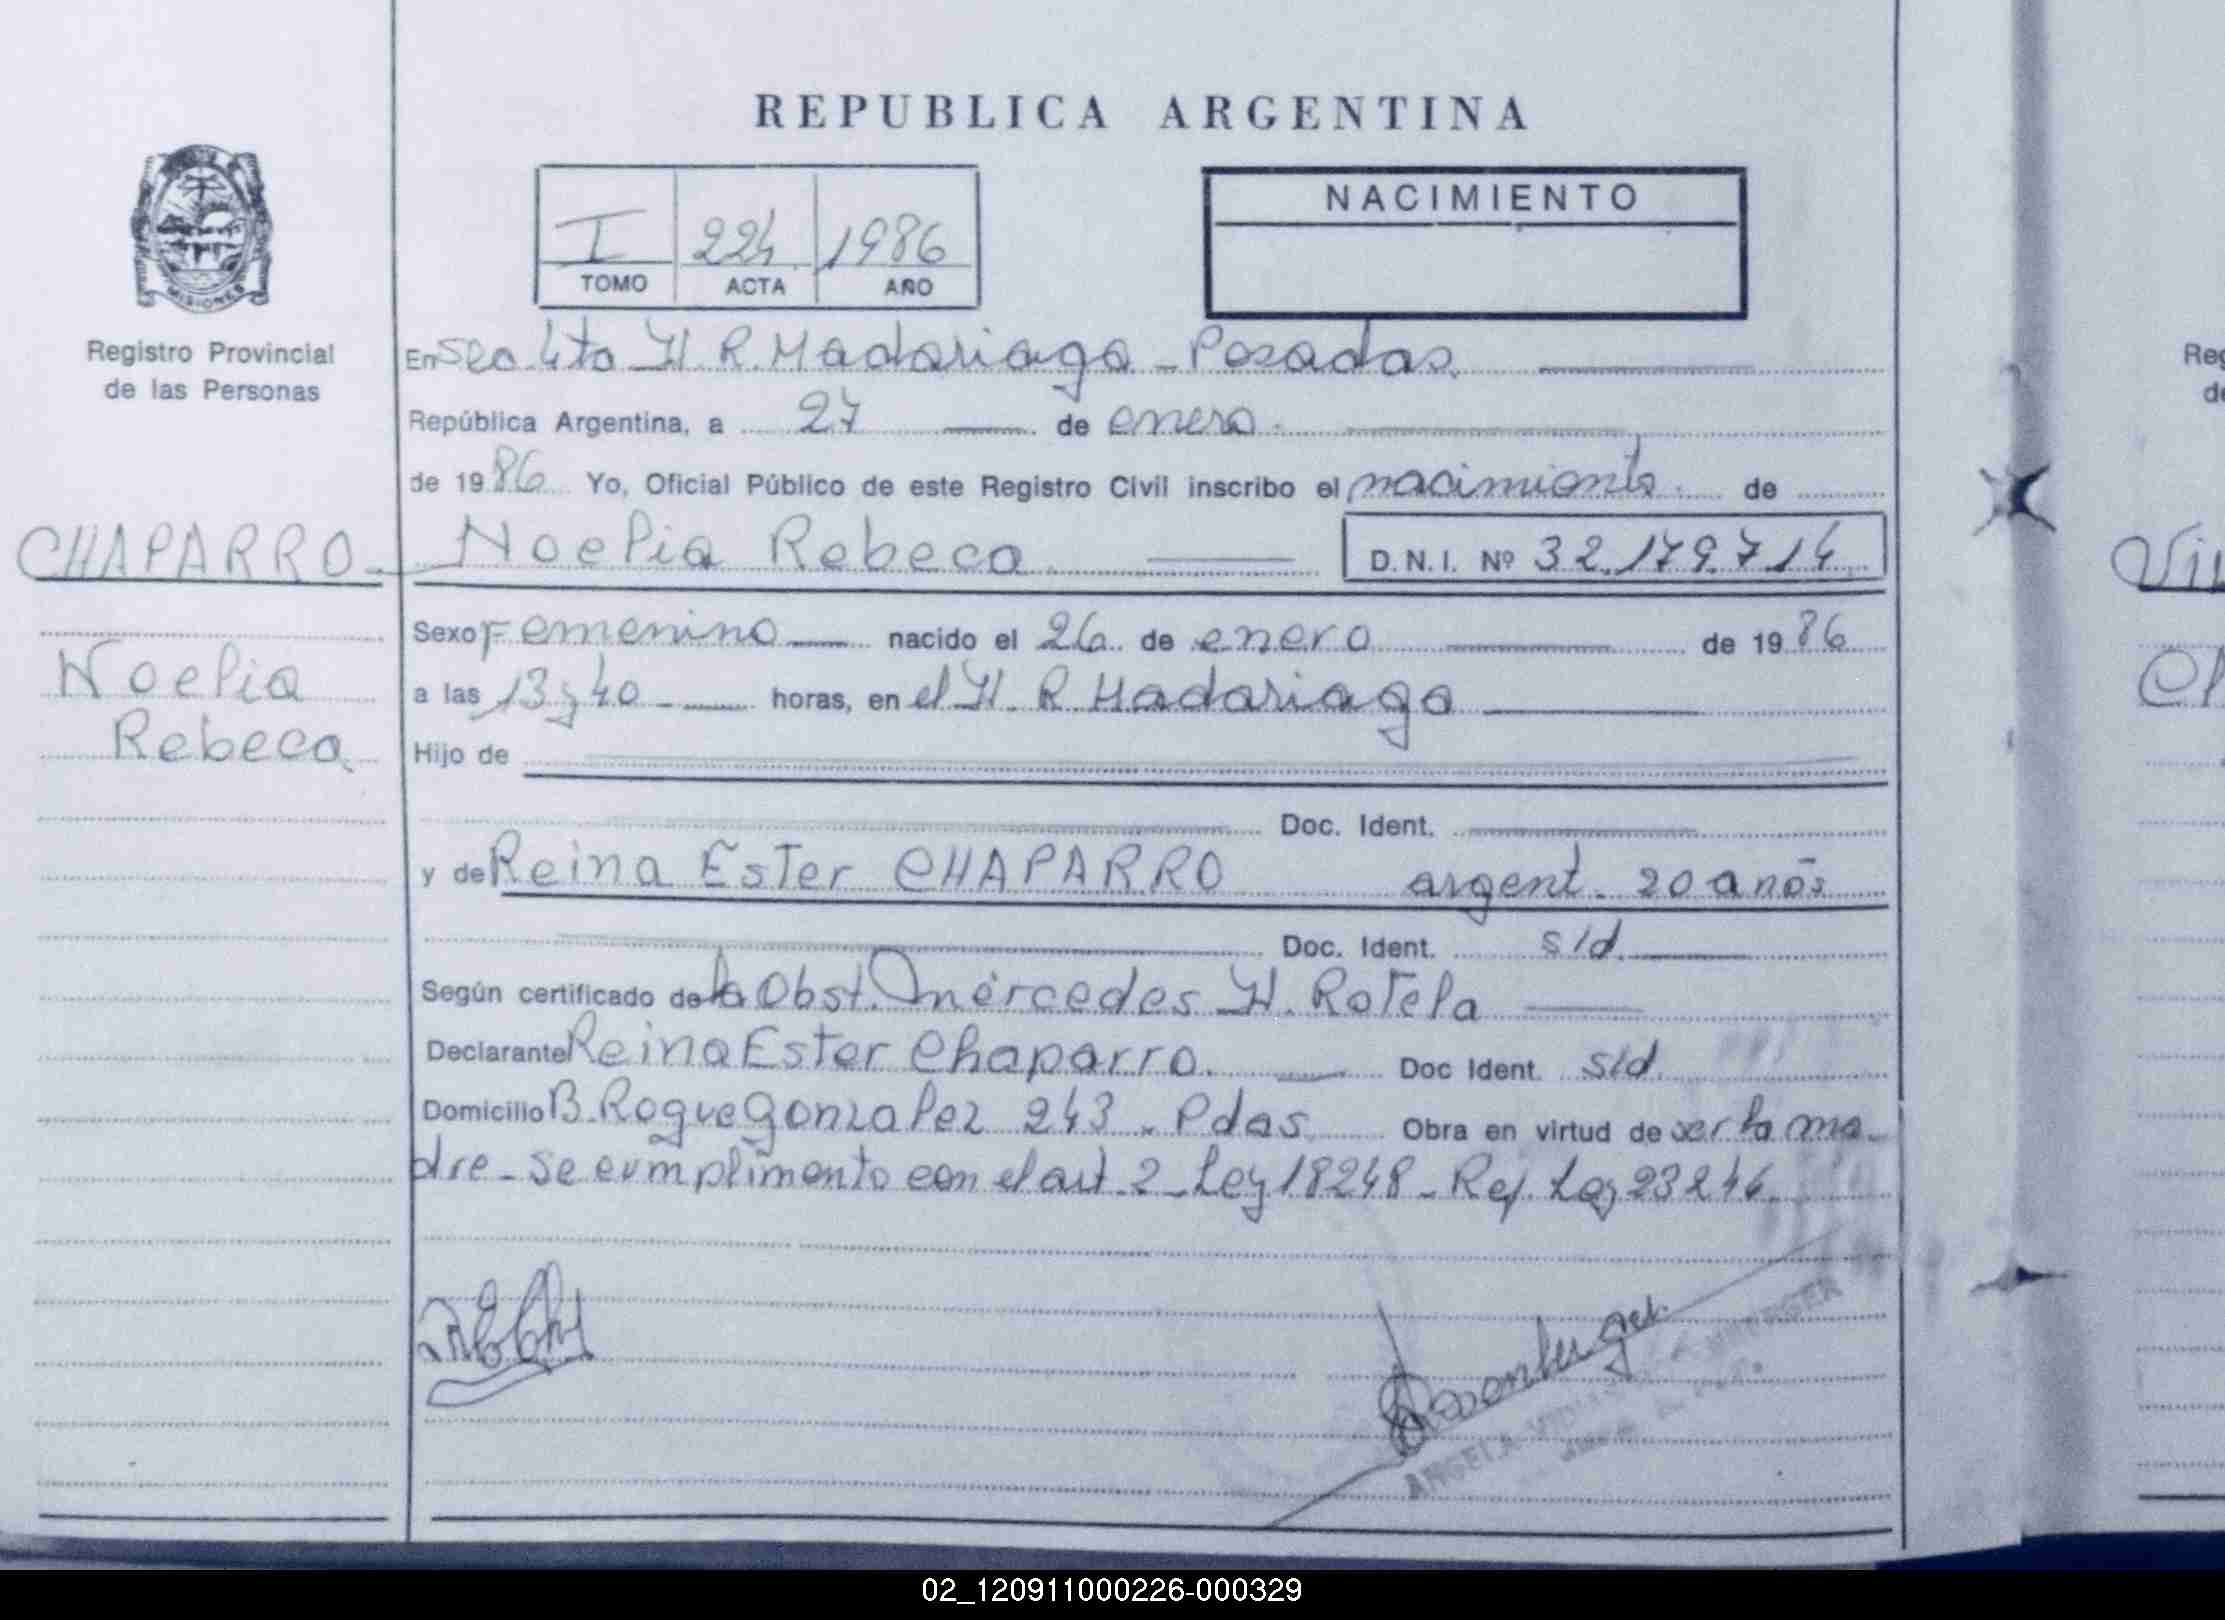 REPUBLICA ARGENTINA
MISIONES
Registro Provincial
de las Personas
I 224 1986
TOMO ACTA AÑO
NACIMIENTO
En Sec. 4ta H. R. Madariaga - Posadas.
República Argentina, a 27 de enero.
de 1986 Yo, Oficial Público de este Registro Civil inscribo el nacimiento. de
CHAPARRO - Noelia Rebeca D.N.I. Nº 32.179.714
Noelia
Rebeca
Sexo Femenino nacido el 26 de enero de 1986
a las 13 y 40 horas, en el H. R. Madariaga
Hijo de
Doc. Ident.
y de Reina Ester CHAPARRO argent. 20 años
Doc. Ident. s/d.
Según certificado de la Obst. Mercedes H. Rotela
Declarante Reina Ester Chaparro. Doc Ident. s/d.
Domicilio B. Roque Gonzalez 243 - Pdas. Obra en virtud de ser la ma-
dre - Se cumplimento con el art. 2 - Ley 18248 - Ref. Ley 23246.
ANGELA
Reg
de
02_120911000226-000329